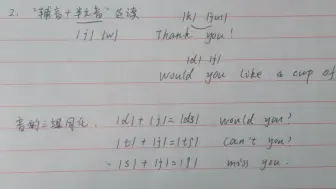 2. "辅音+半元音" 连读
|k| |jus|
|j| |w| Thank you!
|d| |j|
Would you like a cup of
音的三组同化. |d|+|j|=|dʒ| would you?
|t|+|j|=|tʃ| can't you?
|s|+|j|=|ʃ| miss you.